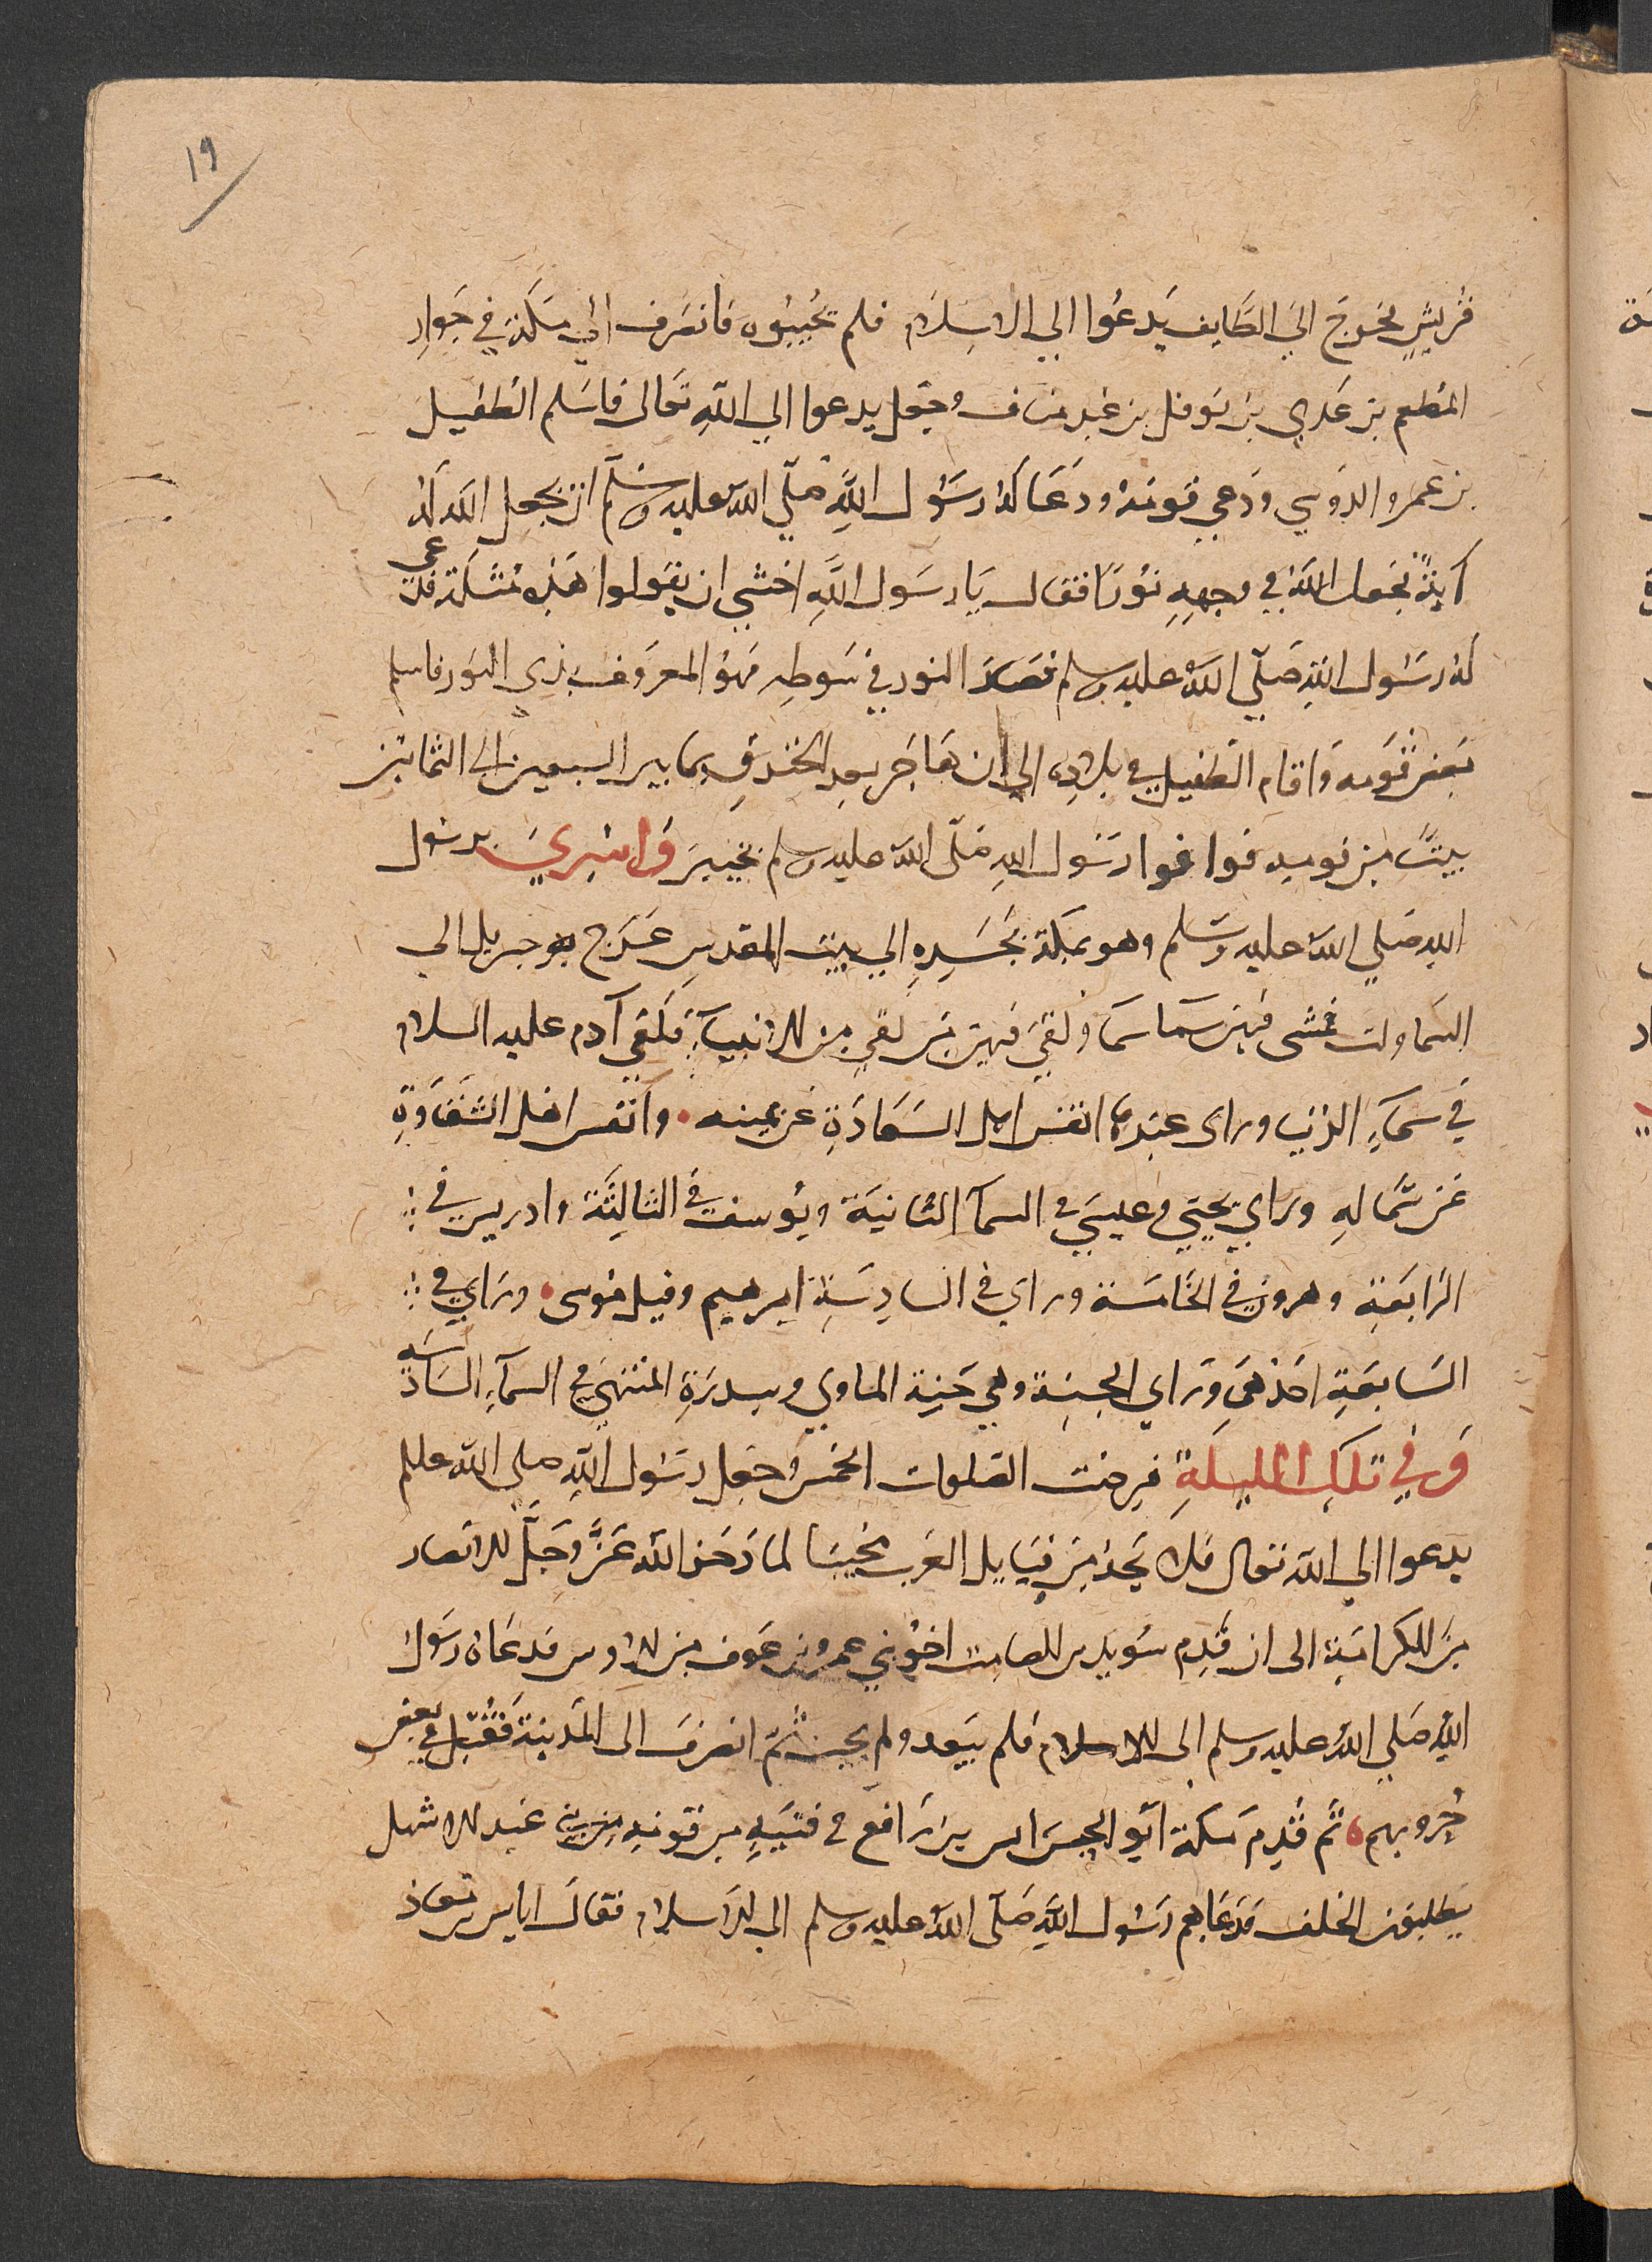 ١٩
قريش فخرج الي الطايف يدعوا الي الاسلام فلم يجيبوه فانصرف الي مكة في جوار
المطعم بن عدي بن نوفل بن عبد مناف وجعل يدعوا الي الله تعالى فاسلم الطفيل
بن عمرو الدوسي ودعي قومه ودعا له رسول الله صلي الله عليه وسلم ان يجعل الله له
آية فجعل الله في وجهه نورا فقال يا رسول الله اخشي ان يقولوا هذه مثلة فدعى
له رسول الله صلي الله عليه وسلم فصار النور في سوطه فهو المعروف بذي النور فاسلم
بعض قومه واقام الطفيل في بلاده الي ان هاجر بعد الخندق بما بين السبعين الى الثمانين
بيتا من قومه فوافوا رسول الله صلى الله عليه وسلم بخيبر واسري برسول
الله صلي الله عليه وسلم وهو بمكة بجسده الي بيت المقدس عرج به جبريل الي
السماوات فمشى فيهن سما سما ولقي فيهن من لقي من الانبياء فلقي آدم عليه السلام
في سماء الدنيا وراى عنده انفس اهل السعادة عن يمينه • وانفس اهل الشقاوة
عن شماله وراي يحيي وعيسي في السما الثانية ويوسف في الثالثة وادريس في
الرابعة وهرون في الخامسة وراي في السادسة ابرهيم وقيل موسى • وراي في
السابعة احدهما وراي الجنة وهي جنة الماوي وسدرة المنتهي في السماء السادسه
وفي تلك الليلة فرضت الصلوات الخمس وجعل رسول الله صلى الله عليه وسلم
يدعوا الي الله تعالى فلا يجد من قبايل العرب مجيبا لما ذخر الله عز وجل للانصار
من الكرامة الى ان قدم سويد بن الصامت اخو بني عمرو بن عوف من الاوس فدعاه رسول
الله صلي الله عليه وسلم الى الاسلام فلم يبعد ولم يجب ثم انصرف الى المدينة فقتل في بعض
حروبهم • ثم قدم مكة ابو الحيسر انس بن رافع في فتية من قومه من بني عبد الاشهل
يطلبون الحلف فدعاهم رسول الله صلى الله عليه وسلم الى الاسلام فقال اياس بن معاذ